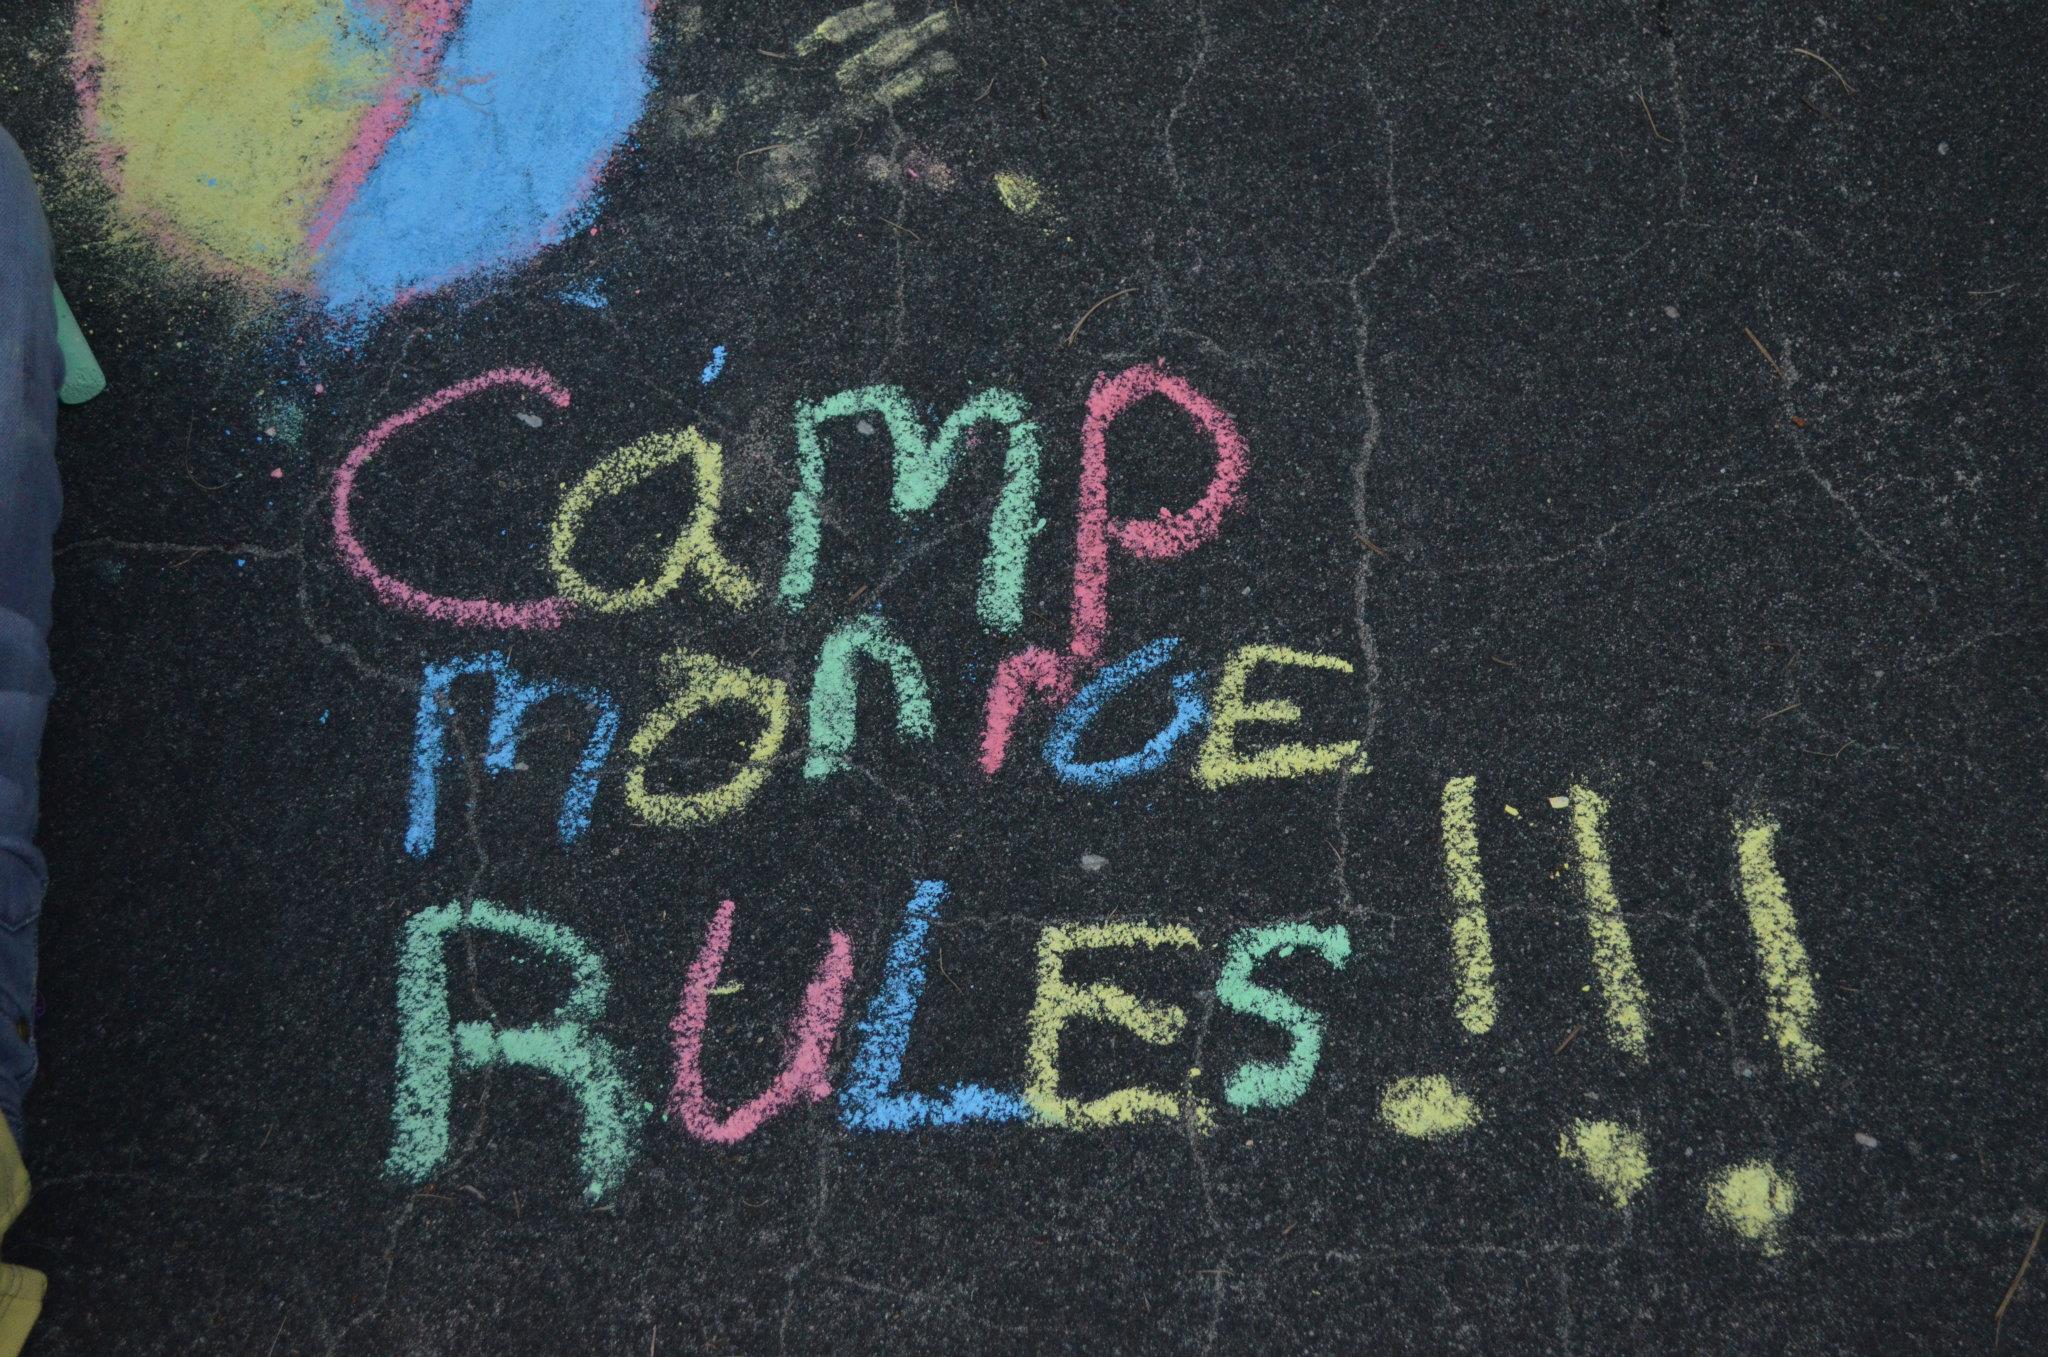 Camp
monroE
RULES!!!